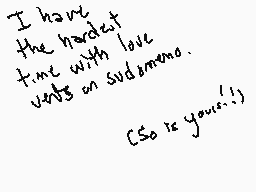 I have
the hardest
time with love
vents on sudomemo.
(So is yours!!)